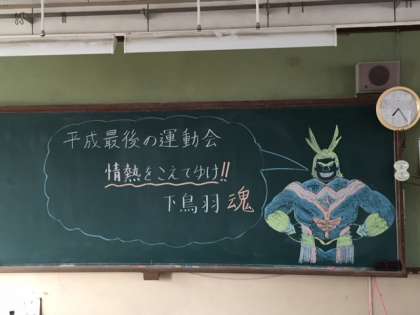 平成最後の運動会
情熱をこえてゆけ!!
下鳥羽 魂